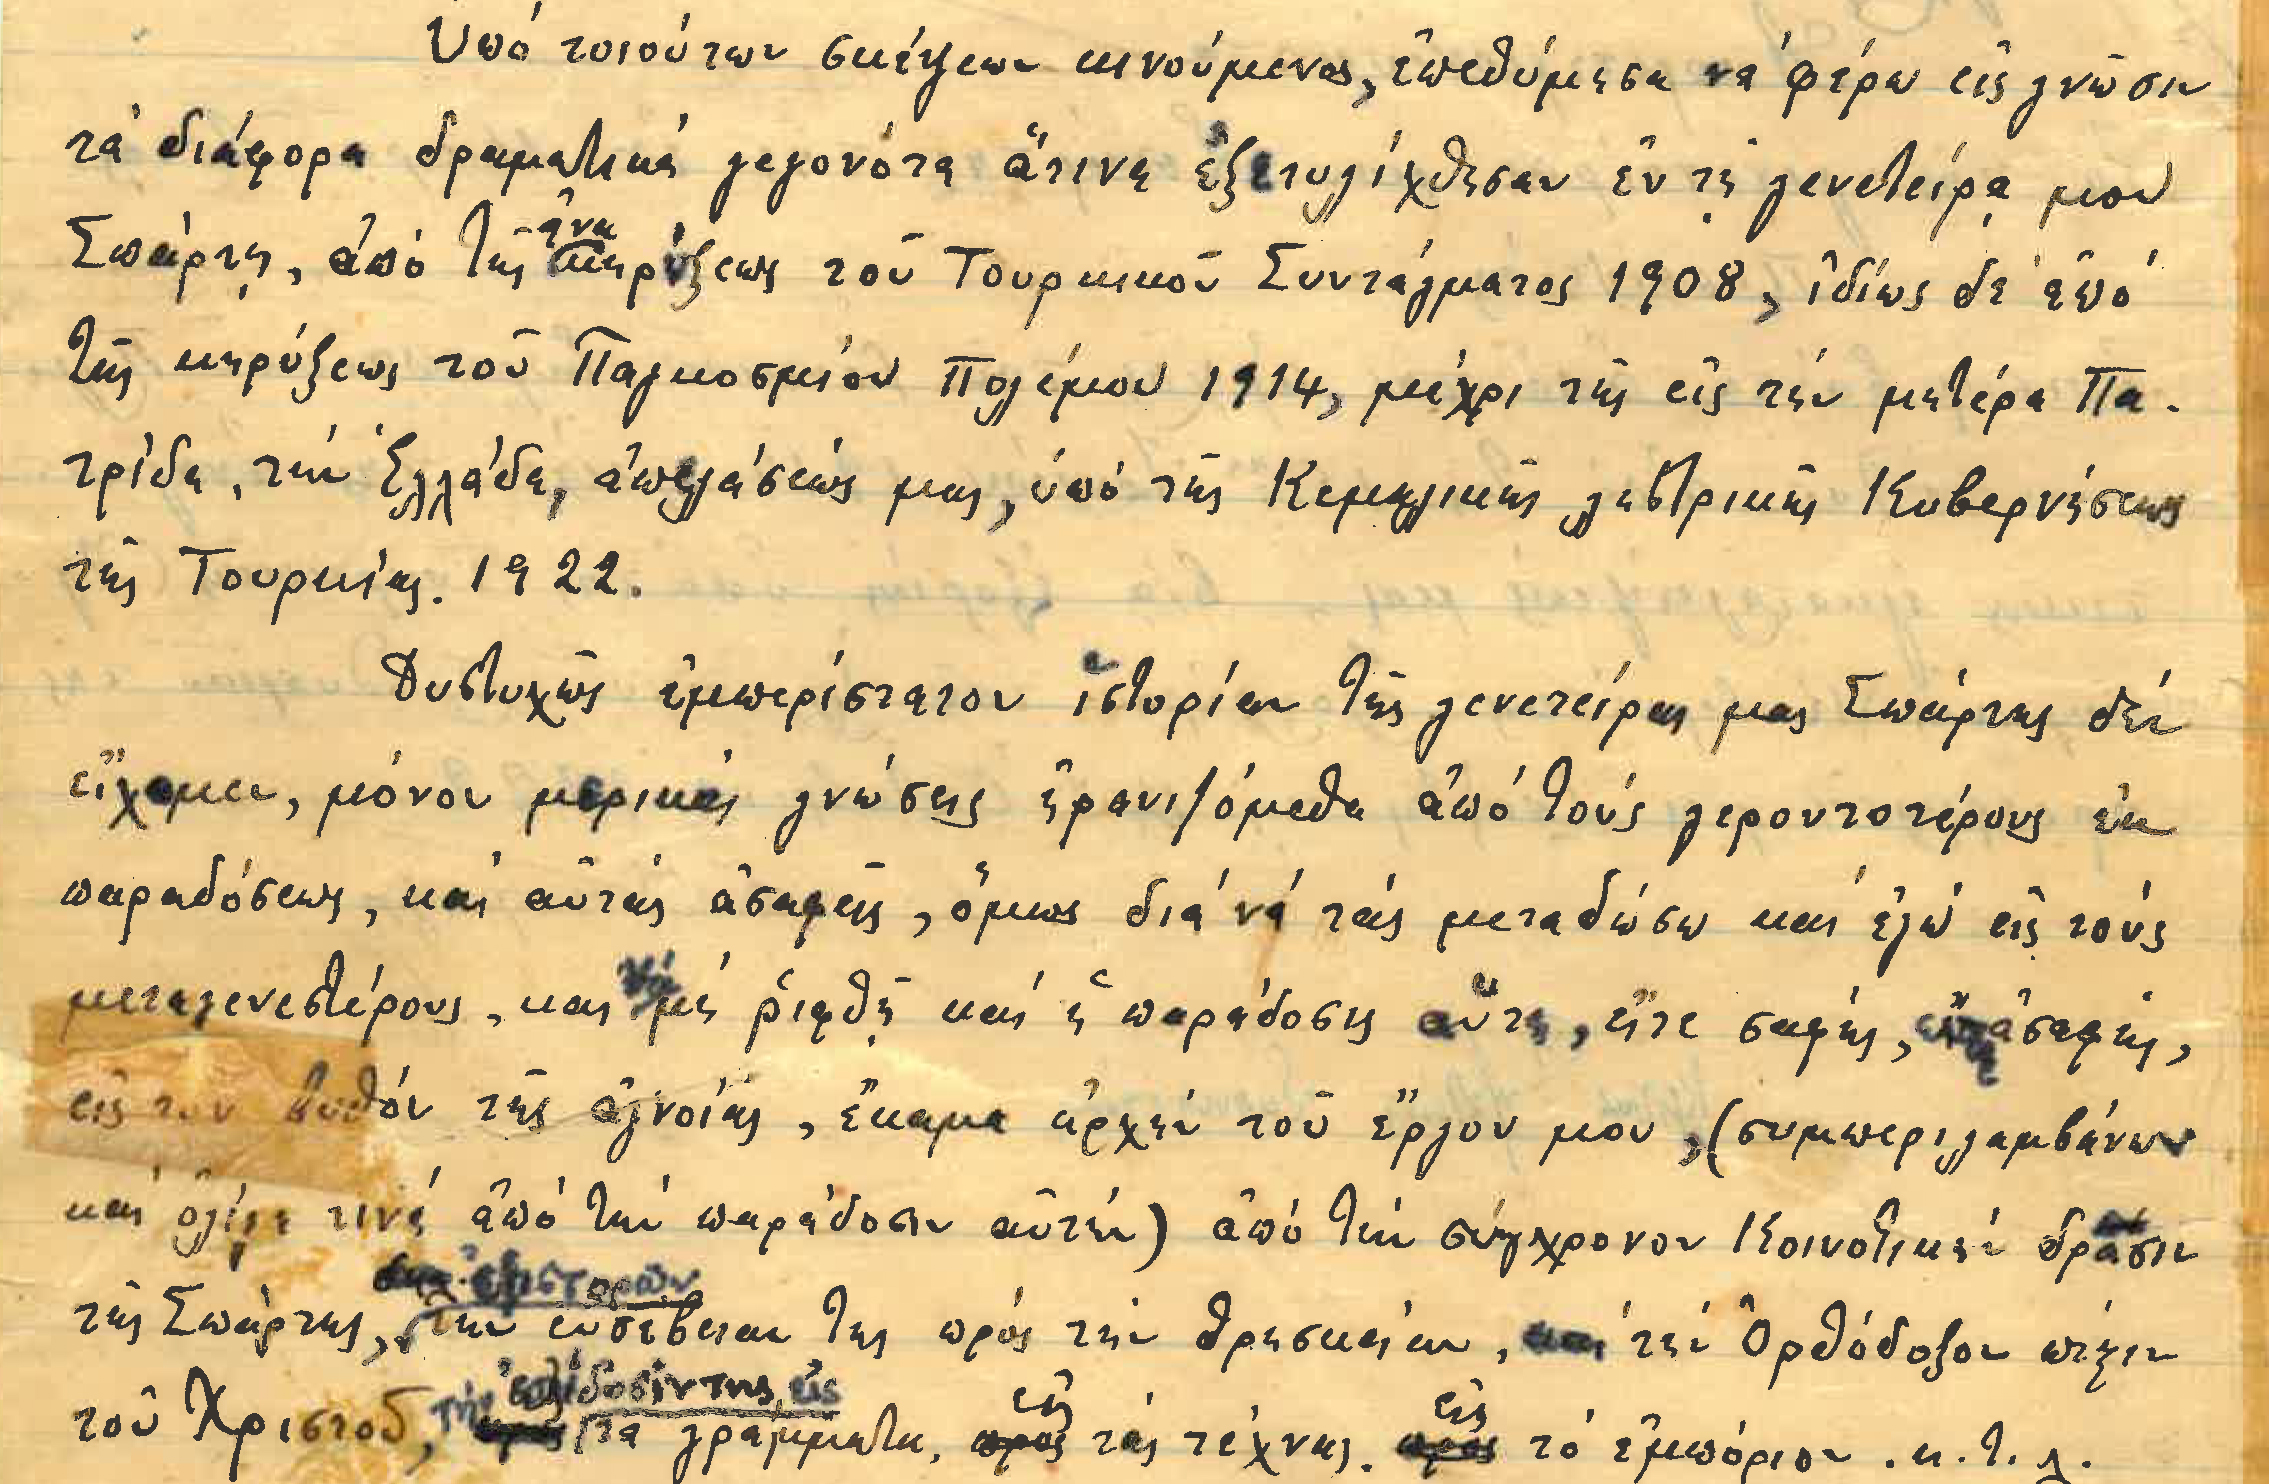 Ὑπό τοιούτων σκέψεων κινούμενος, ἐπεθύμησα νά φέρω εἰς γνῶσιν
τά διάφορα δραματικά γεγονότα ἅτινα ἐξετυλίχθησαν ἐν τῇ γενετείρᾳ μου
Σπάρτῃ, ἀπό τῆς ἀνακηρύξεως τοῦ Τουρκικοῦ Συντάγματος 1908, ἰδίως δέ ἀπό
τῆς κηρύξεως τοῦ Παγκοσμίου Πολέμου 1914, μέχρι τῆς εἰς τήν μητέρα Πα-
τρίδα, τήν Ἑλλάδα, ἀπελάσεώς μας, ὑπό τῆς Κεμαλικῆς ληστρικῆς Κυβερνήσεως
τῆς Τουρκίας. 1922.
Δυστυχῶς ἐμπερίστατον ἱστορίαν τῆς γενετείρας μας Σπάρτης δέν
εἴχαμεν, μόνον μερικάς γνώσεις ἠρανιζόμεθα ἀπό τούς γεροντοτέρους ἐκ
παραδόσεως, καί αὐτάς ἀσαφεῖς, ὅμως διά νά τάς μεταδώσω καί ἐγώ εἰς τούς
μεταγενεστέρους, και νά μή ῥιφθῇ καί ἡ παράδοσις αὕτη, εἴτε σαφής, εἴτε ἀσαφής,
εἰς τον βυθόν τῆς ἀγνοίας, ἔκαμα ἀρχήν τοῦ ἔργου μου, (συμπεριλαμβάνων
καί ὀλίγα τινά ἀπό τήν παράδοσιν αὐτήν) ἀπό τήν σύγχρονον Κοινοτικήν δρᾶσιν
τῆς Σπάρτης, ἐξιστορῶν τήν εὐσέβειαν της πρός τήν θρησκείαν, και τήν Ὀρθόδοξον πίστιν
τοῦ Χριστοῦ, τήν ἐπίδοσίν της εἰς τα γράμματα, εἰς τάς τέχνας, εἰς τό ἐμπόριον. κ.τ.λ.